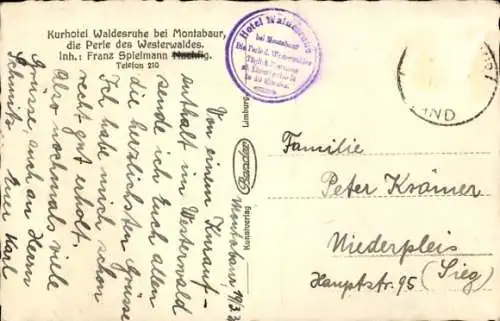 Kurhotel Waldesruhe bei Montabaur,
die Perle des Westerwaldes.
Inh.: Franz Spielmann Nachflg.
Telefon 210
Hotel Waldesruhe
bei Montabaur
Die Perle d. Westerwaldes
in 10 Minuten
Montabaur, 19/3
Von einem Kurauf-
enthalt im Westerwald
sende ich Euch allen
die herzlichsten Grüsse
Ich habe mich schon
recht gut erholt.
Also nochmals viele
Grüsse, auch an Herrn
Schmitz Euer Karl
Kunstverlag
Limburg
Familie
Peter Krämer
Niederpleis
Hauptstr. 95 (Sieg)